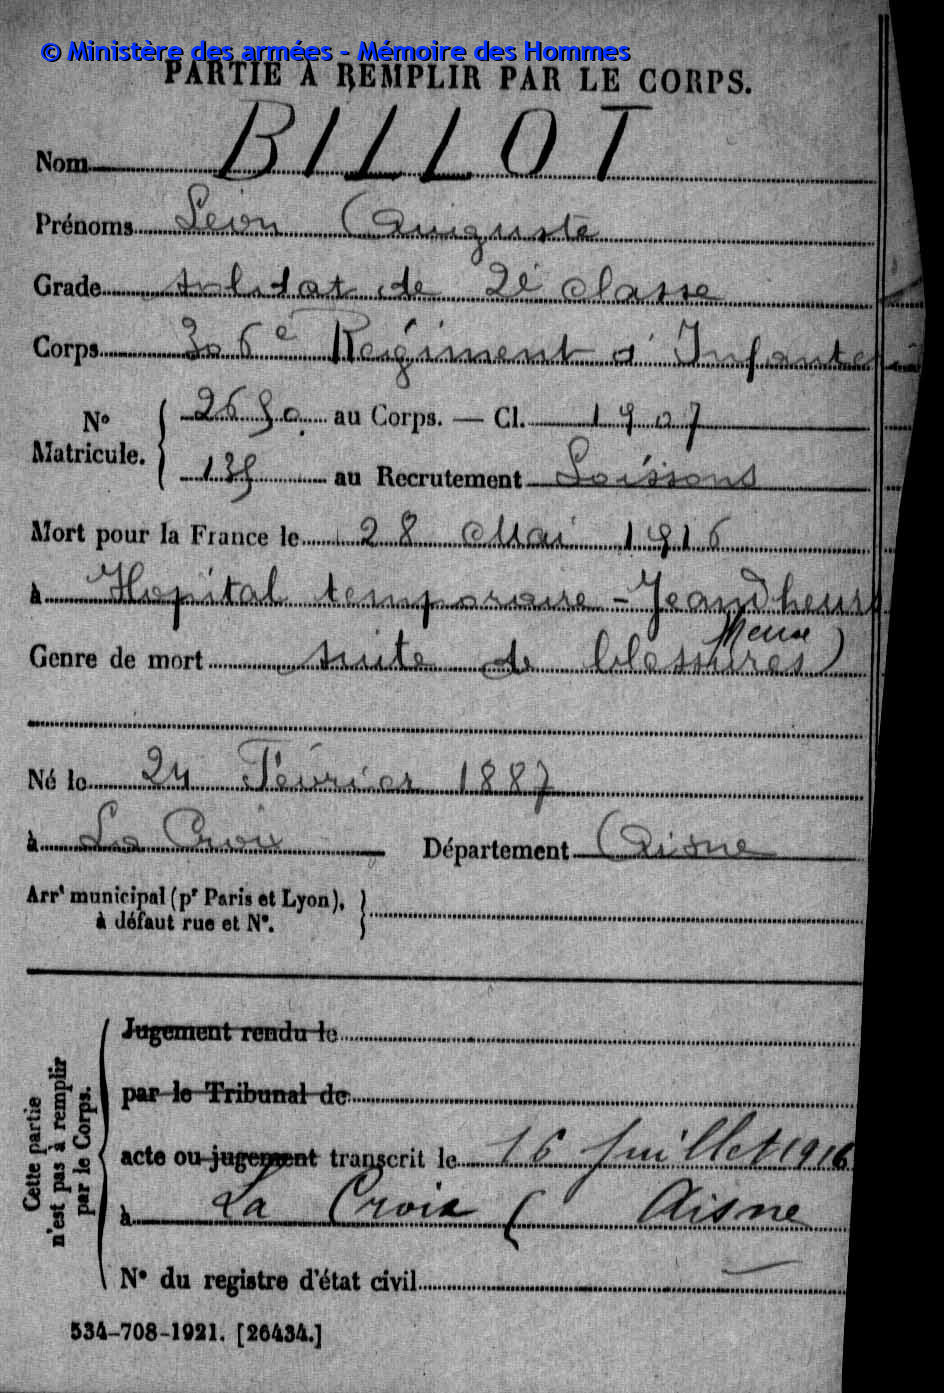 © Ministère des armées - Mémoire des Hommes
PARTIE À REMPLIR PAR LE CORPS.
Nom BILLOT
Prénoms Léon Auguste
Grade soldat de 2e classe
Corps 306e Régiment d'Infanterie
No Matricule. { 2690 au Corps. — Cl. 1907
139 au Recrutement Soissons
Mort pour la France le 28 Mai 1916
à Hopital temporaire - Jeand'heurs
Meuse)
Genre de mort suite de blessures
Né le 24 Février 1887
à La Croix Département Aisne
Arrt municipal (pr Paris et Lyon), }
à défaut rue et No.
Cette partie n'est pas à remplir par le Corps. {
Jugement rendu le
par le Tribunal de
acte ou jugement transcrit le 16 Juillet 1916
à La Croix (Aisne
No du registre d'état civil
534-708-1921. [26434.]